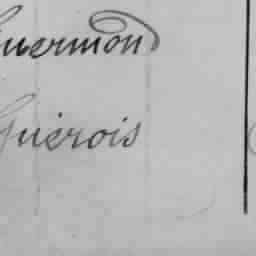 Guermond
Guérois